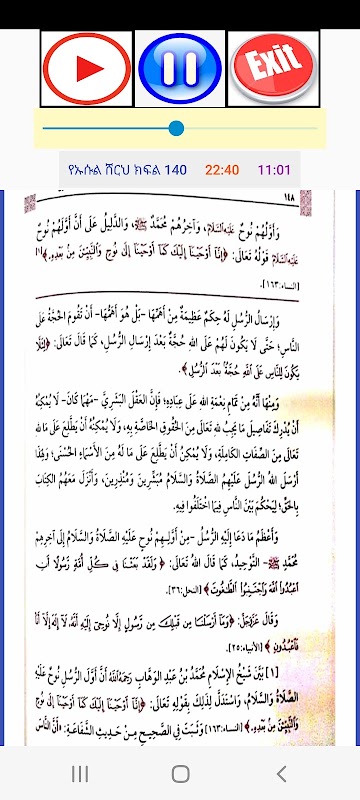 Exit
የኡሱል ሸርህ ክፍል 140 22:40 11:01
١٤٨
وَأَوَّلُهُمْ نُوحٌ عَلَيْهِ السَّلَامُ، وَآخِرُهُمْ مُحَمَّدٌ ﷺ، وَالدَّلِيلُ عَلَى أَنَّ أَوَّلَهُمْ نُوحٌ
عَلَيْهِ السَّلَامُ قَوْلُهُ تَعَالَى: ﴿إِنَّآ أَوْحَيْنَآ إِلَيْكَ كَمَآ أَوْحَيْنَآ إِلَىٰ نُوحٍ وَٱلنَّبِيِّـۧنَ مِنۢ بَعْدِهِۦ﴾[١]
[النساء:١٦٣].
وَإِرْسَالُ الرُّسُلِ لَهُ حِكَمٌ عَظِيمَةٌ مِنْ أَهَمِّهَا -بَلْ هُوَ أَهَمُّهَا- أَنْ تَقُومَ الحُجَّةُ عَلَى
النَّاسِ؛ حَتَّى لَا يَكُونَ لَهُمْ عَلَى اللهِ حُجَّةٌ بَعْدَ إِرْسَالِ الرُّسُلِ، كَمَا قَالَ تَعَالَى: ﴿لِئَلَّا
يَكُونَ لِلنَّاسِ عَلَى ٱللَّهِ حُجَّةٌۢ بَعْدَ ٱلرُّسُلِ﴾.
وَمِنْهَا أَنَّهُ مِنْ تَمَامِ نِعْمَةِ اللهِ عَلَى عِبَادِهِ؛ فَإِنَّ العَقْلَ البَشَرِيَّ -مَهْمَا كَانَ- لَا يُمْكِنُهُ
أَنْ يُدْرِكَ تَفَاصِيلَ مَا يَجِبُ للهِ تَعَالَى مِنَ الحُقُوقِ الخَاصَّةِ بِهِ، وَلَا يُمْكِنُهُ أَنْ يَطَّلِعَ عَلَى مَا للهِ
تَعَالَى مِنَ الصِّفَاتِ الكَامِلَةِ، وَلَا يُمْكِنُ أَنْ يَطَّلِعَ عَلَى مَا لَهُ مِنَ الأَسْمَاءِ الحُسْنَى؛ وَلِهَذَا
أَرْسَلَ اللهُ الرُّسُلَ عَلَيْهِمُ الصَّلَاةُ وَالسَّلَامُ مُبَشِّرِينَ وَمُنْذِرِينَ، وَأَنْزَلَ مَعَهُمُ الكِتَابَ
بِالحَقِّ؛ لِيَحْكُمَ بَيْنَ النَّاسِ فِيمَا اخْتَلَفُوا فِيهِ.
وَأَعْظَمُ مَا دَعَا إِلَيْهِ الرُّسُلُ -مِنْ أَوَّلِهِمْ نُوحٍ عَلَيْهِ الصَّلَاةُ وَالسَّلَامُ إِلَى آخِرِهِمْ
مُحَمَّدٍ ﷺ- التَّوْحِيدُ، كَمَا قَالَ اللهُ تَعَالَى: ﴿وَلَقَدْ بَعَثْنَا فِى كُلِّ أُمَّةٍ رَّسُولًا أَنِ
ٱعْبُدُوا۟ ٱللَّهَ وَٱجْتَنِبُوا۟ ٱلطَّـٰغُوتَ﴾ [النحل:٣٦].
وَقَالَ عَزَّوَجَلَّ: ﴿وَمَآ أَرْسَلْنَا مِن قَبْلِكَ مِن رَّسُولٍ إِلَّا نُوحِىٓ إِلَيْهِ أَنَّهُۥ لَآ إِلَـٰهَ إِلَّآ أَنَا۠
فَٱعْبُدُونِ﴾ [الأنبياء:٢٥].
[١] بَيَّنَ شَيْخُ الإِسْلَامِ مُحَمَّدُ بْنُ عَبْدِ الوَهَّابِ رَحِمَهُ اللَّهُ أَنَّ أَوَّلَ الرُّسُلِ نُوحٌ عَلَيْهِ
الصَّلَاةُ وَالسَّلَامُ، وَاسْتَدَلَّ لِذَلِكَ بِقَوْلِهِ تَعَالَى: ﴿إِنَّآ أَوْحَيْنَآ إِلَيْكَ كَمَآ أَوْحَيْنَآ إِلَىٰ نُوحٍ
وَٱلنَّبِيِّـۧنَ مِنۢ بَعْدِهِۦ﴾ [النساء:١٦٣] وَثَبَتَ فِي الصَّحِيحِ مِنْ حَدِيثِ الشَّفَاعَةِ: «أَنَّ النَّاسَ